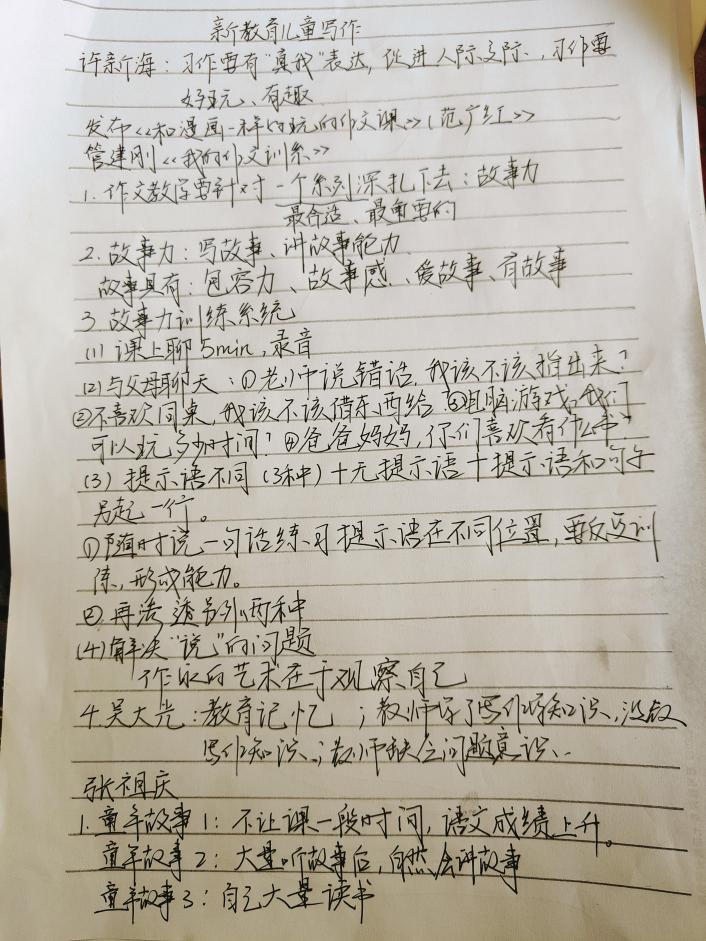 新教育儿童写作
许新海：习作要有“真我”表达，促进人际交际，习作要
好玩、有趣
发布《和漫画一样好玩的作文课》（范广红）
管建刚《我的作文训系》
1. 作文教学要针对一个系列深扎下去：故事力
最合适、最重要的
2. 故事力：写故事、讲故事能力
故事具有：包容力、故事感、爱故事、有故事
3. 故事力训练系统
(1) 课上聊5min，录音
(2) 与父母聊天：①老师说错话，我该不该指出来？
②不喜欢同桌，我该不该借东西给？③电脑游戏，我们
可以玩多少时间？④爸爸妈妈，你们喜欢看什么书？
(3) 提示语不同（3种）+无提示语+提示语和句子
另起一行。
①随时说一句话练习提示语在不同位置，要反复训
练，形成能力。
②再渗透另外两种
(4) 解决“说”的问题
作家的艺术在于观察自己
4. 吴大光：教育记忆；教师学了写作知识，没教
写作知识；教师缺乏问题意识、
张祖庆
1. 童年故事1：不让课一段时间，语文成绩上升。
童年故事2：大量听故事后，自然会讲故事
童年故事3：自己大量读书